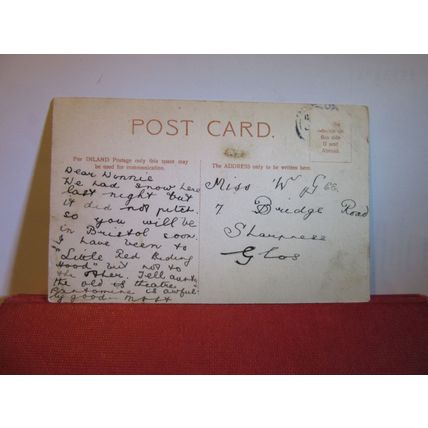 POST CARD.
For INLAND Postage only this space may
be used for communication.
The ADDRESS only to be written here.
Dear Winnie
We had snow here
last night but
it did not pitch.
so you will be
in Bristol soon.
I have been to
"Little Red Riding
Hood" but not to
the other. Tell
the old is theatre
Pantomime is awful-
ly good
Miss W Gee
7 Bridge Road
Sharpness
Glos
and
Abroad.